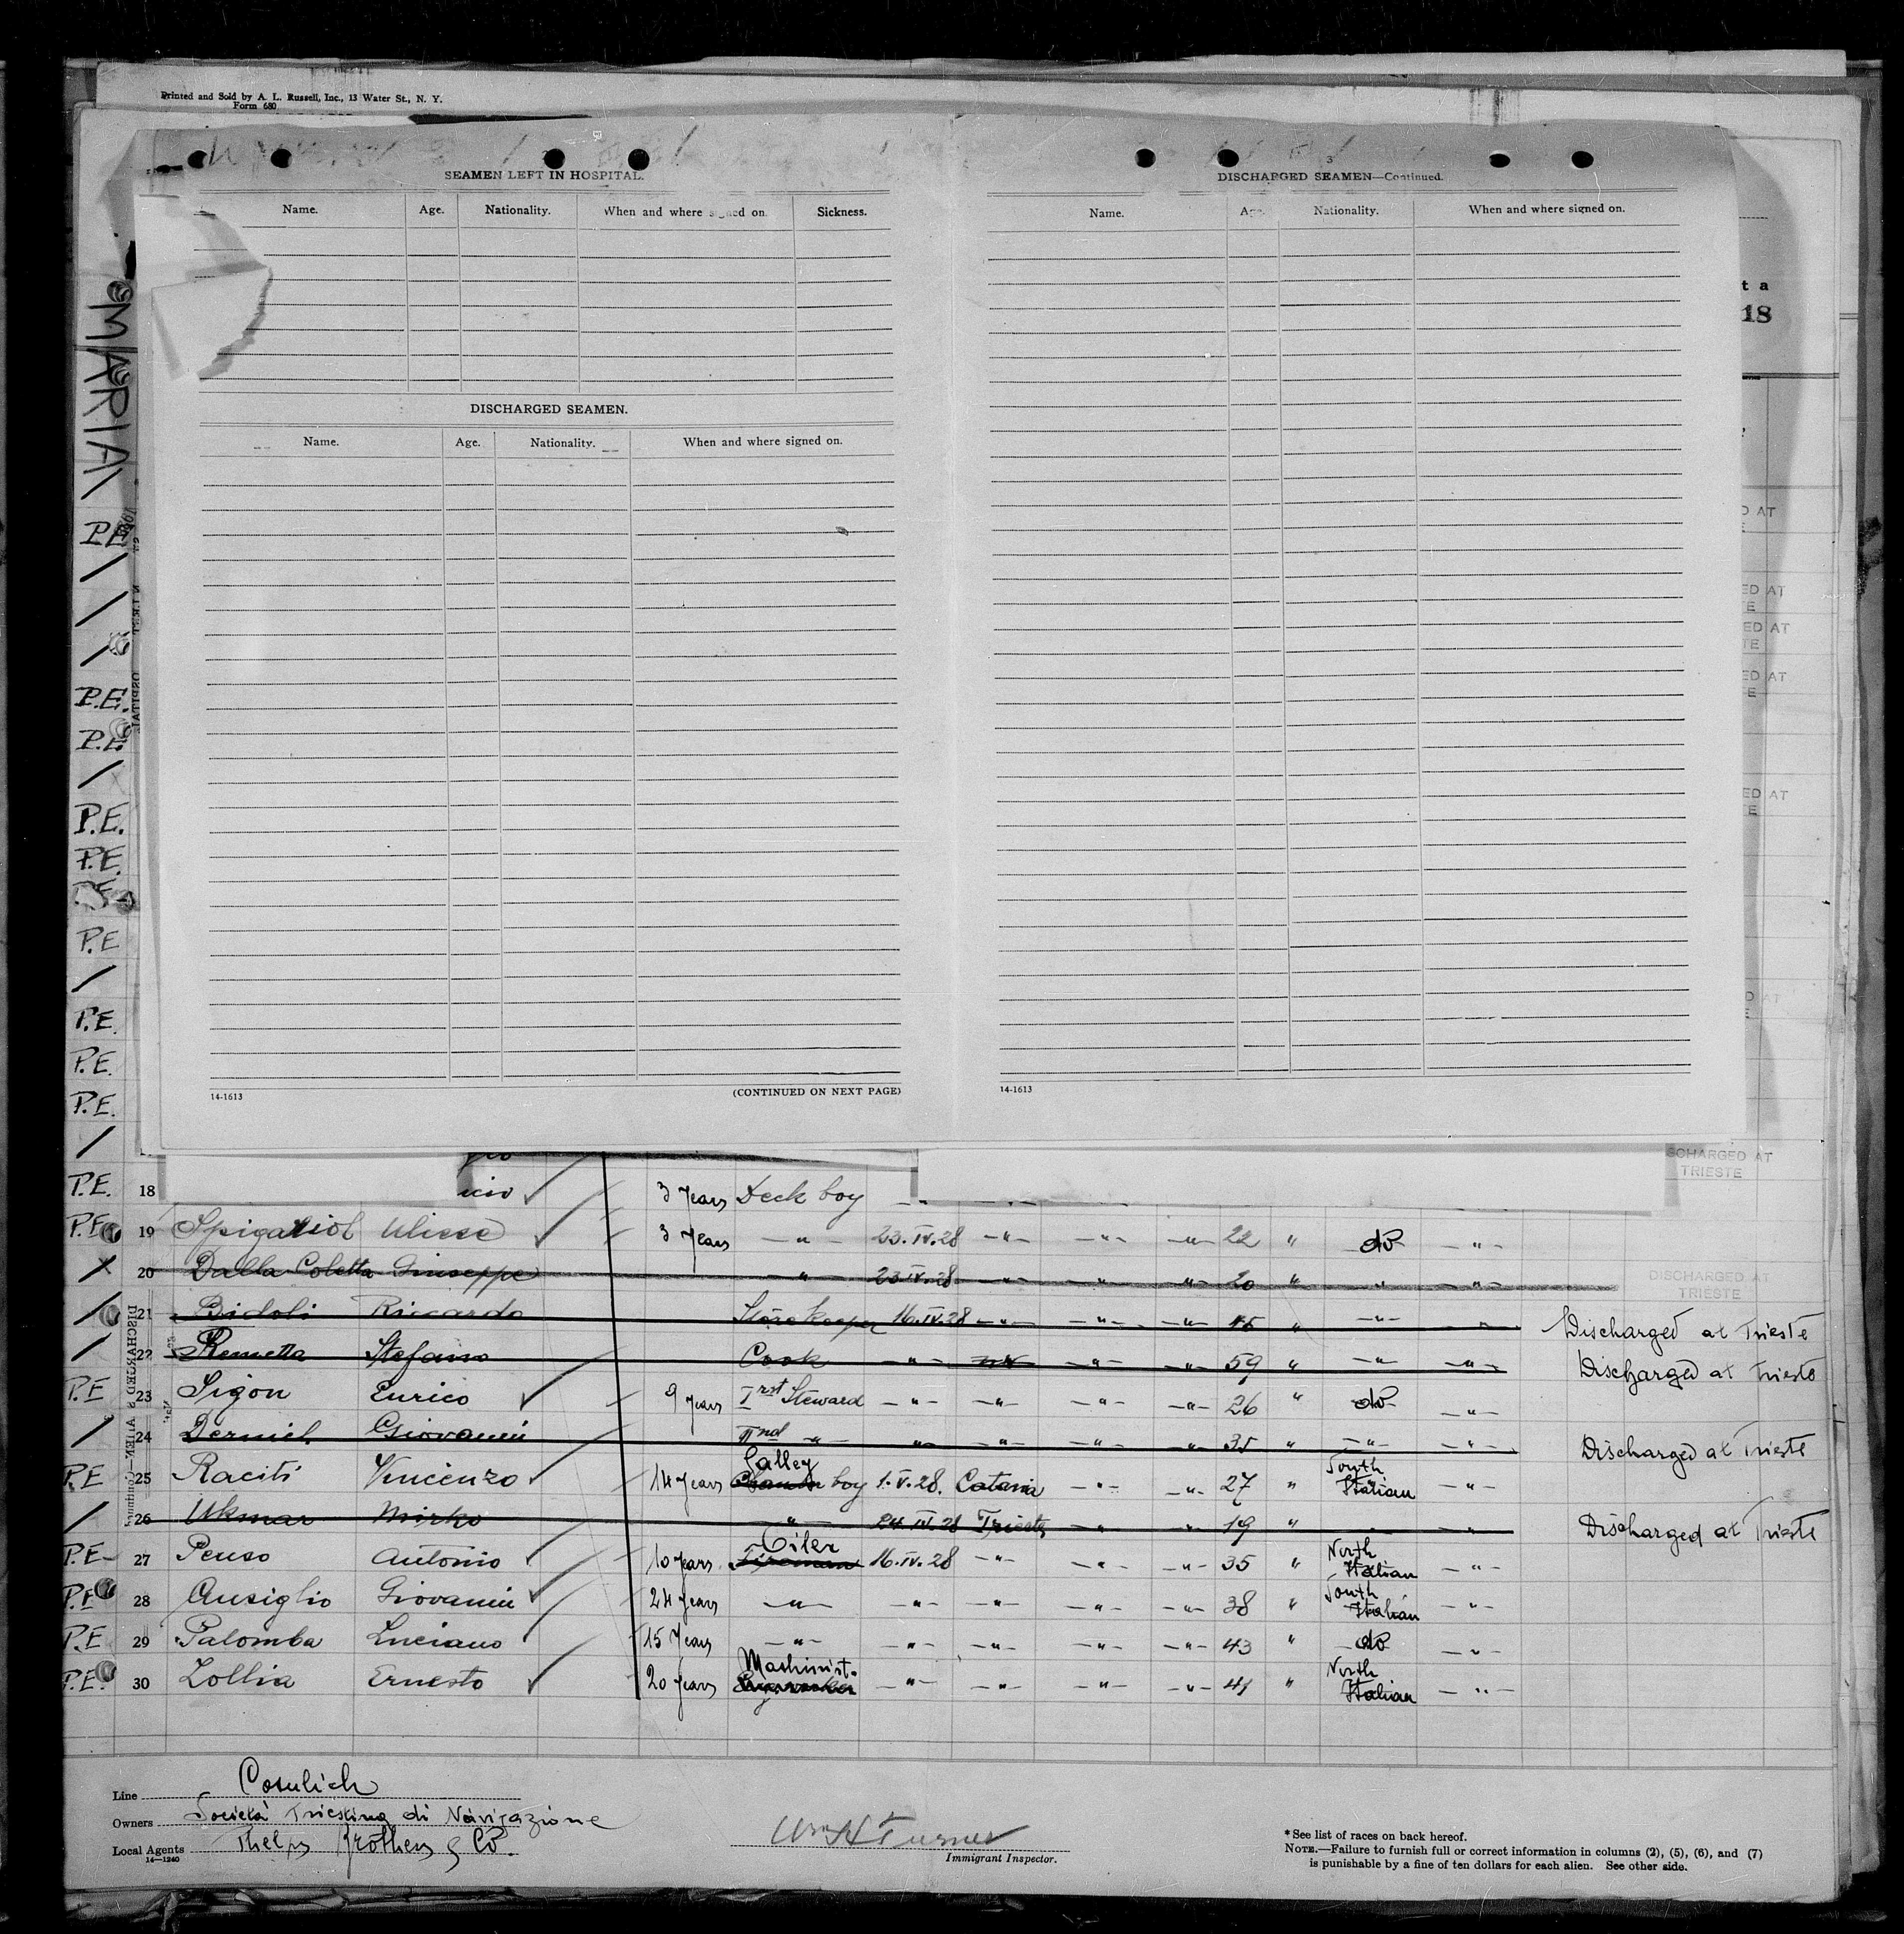 Printed and Sold by A. L. Russell, Inc., 13 Water St., N. Y.
Form 680
SEAMEN LEFT IN HOSPITAL.
Name. Age. Nationality. When and where signed on. Sickness.
DISCHARGED SEAMEN.
Name. Age. Nationality. When and where signed on.
14-1613 (CONTINUED ON NEXT PAGE)
3
DISCHARGED SEAMEN—Continued.
Name. Age. Nationality. When and where signed on.
14-1613
t a
18
MARIA
P.E.
P.E.
P.E.
P.E.
P.E.
P.E
P.E.
P.E.
P.E.
DISCHARGED AT
TRIESTE
P.E. 18 3 Years Deck boy
P.E 19 Ulisse 3 Years —"— 23.IV.28 —"— —"— —"— 22 " do —"—
20 Dalla Coletta Giuseppe —"— 23.IV.28 —"— —"— —"— 20 " " —"— DISCHARGED AT TRIESTE
21 Bidoli Riccardo Storekeeper 16.IV.28 —"— —"— —"— 45 " —"— —"— Discharged at Trieste
22 Remetta Stefano Cook —"— —"— —"— 59 " —"— —"— Discharged at Trieste
P.E 23 Sigon Enrico 9 Years Irst Steward —"— —"— —"— —"— 26 " do —"—
24 Giovanni IInd —"— —"— —"— —"— —"— 35 " —"— —"— Discharged at Trieste
P.E 25 Raciti Vincenzo 14 Years Galley boy 1.V.28. Catania —"— —"— 27 " South Italian —"—
26 Ukmar Mirko —"— 24.IV.28 Trieste —"— —"— 19 " —"— Discharged at Trieste
P.E 27 Penso Antonio 10 Years Oiler Fireman 16.IV.28 —"— —"— —"— 35 " North Italian —"—
P.E 28 Ausiglio Giovanni 24 Years —"— —"— —"— —"— —"— 38 " South Italian —"—
P.E 29 Palomba Luciano 15 Years —"— —"— —"— —"— —"— 43 " do —"—
P.E. 30 Zollia Ernesto 20 Years Mashinist. —"— —"— —"— —"— 41 " North Italian —"—
Line Cosulich
Owners Società Triestina di Navigazione
Local Agents Phelps Brothers & Co.
14—1240
Wm H Turner
Immigrant Inspector.
* See list of races on back hereof.
NOTE.—Failure to furnish full or correct information in columns (2), (5), (6), and (7)
is punishable by a fine of ten dollars for each alien. See other side.